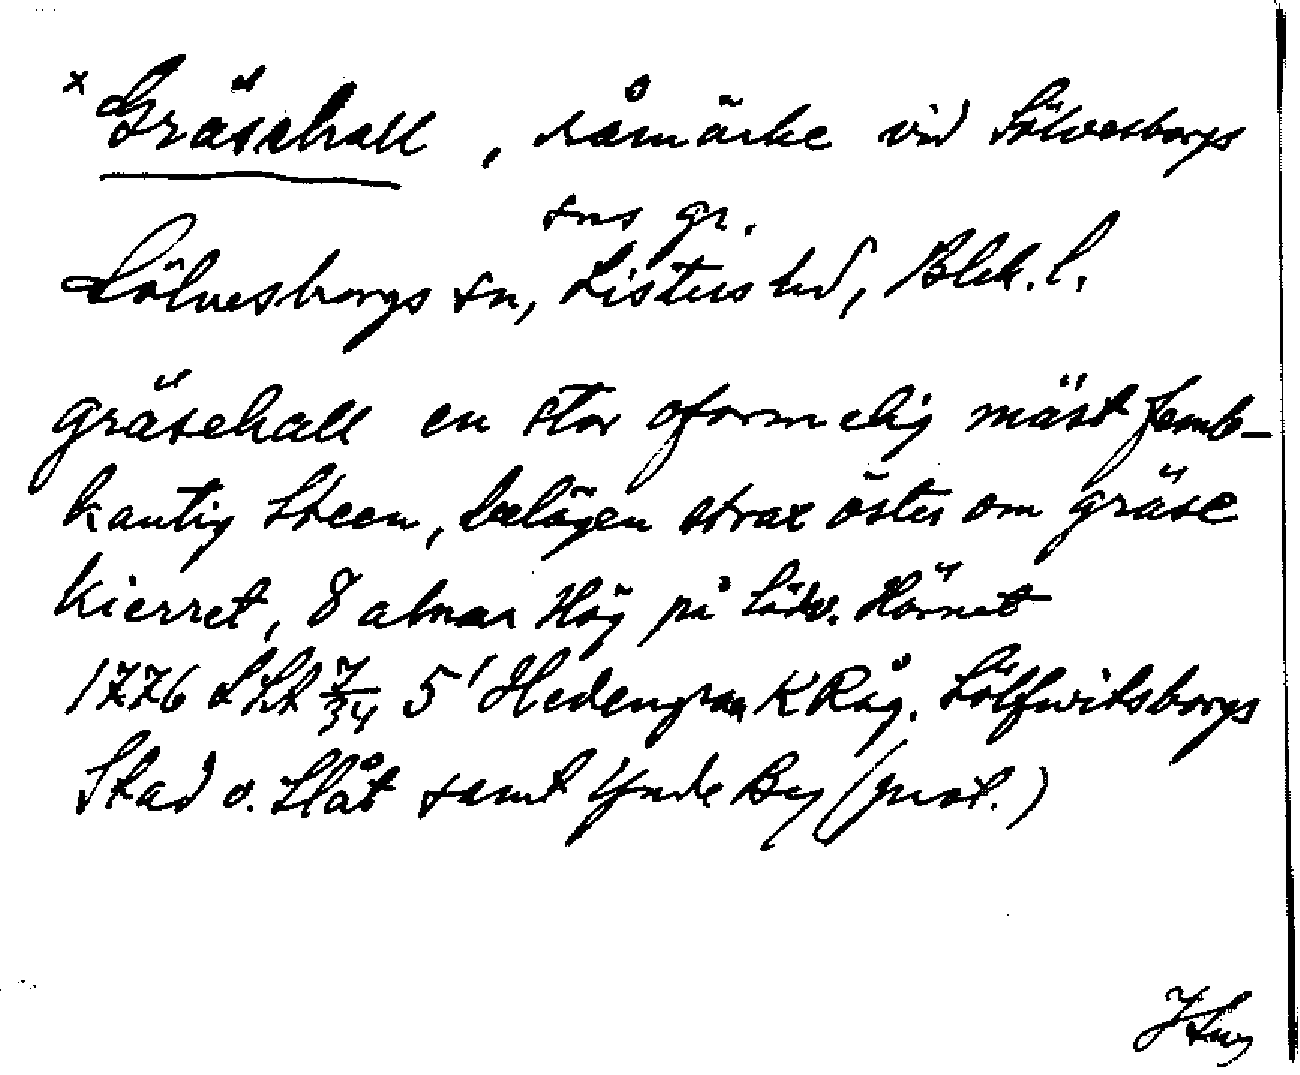 × Gräsehall, råmärke vid Sölvesborgs
sns gr.
Sölvesborgs sn, Listers hd, Blek. l.
gräsehall en stor oformelig mäst femb-
kantig Steen, belägen strax öster om gräse
kierret, 8 alnar Hög på Südv. Hörnet
1776 LSA 7/34 5' Hedengran K Råg. Sölfwitsborgs
Stad o. Slåt samt Ynde By (prot.)